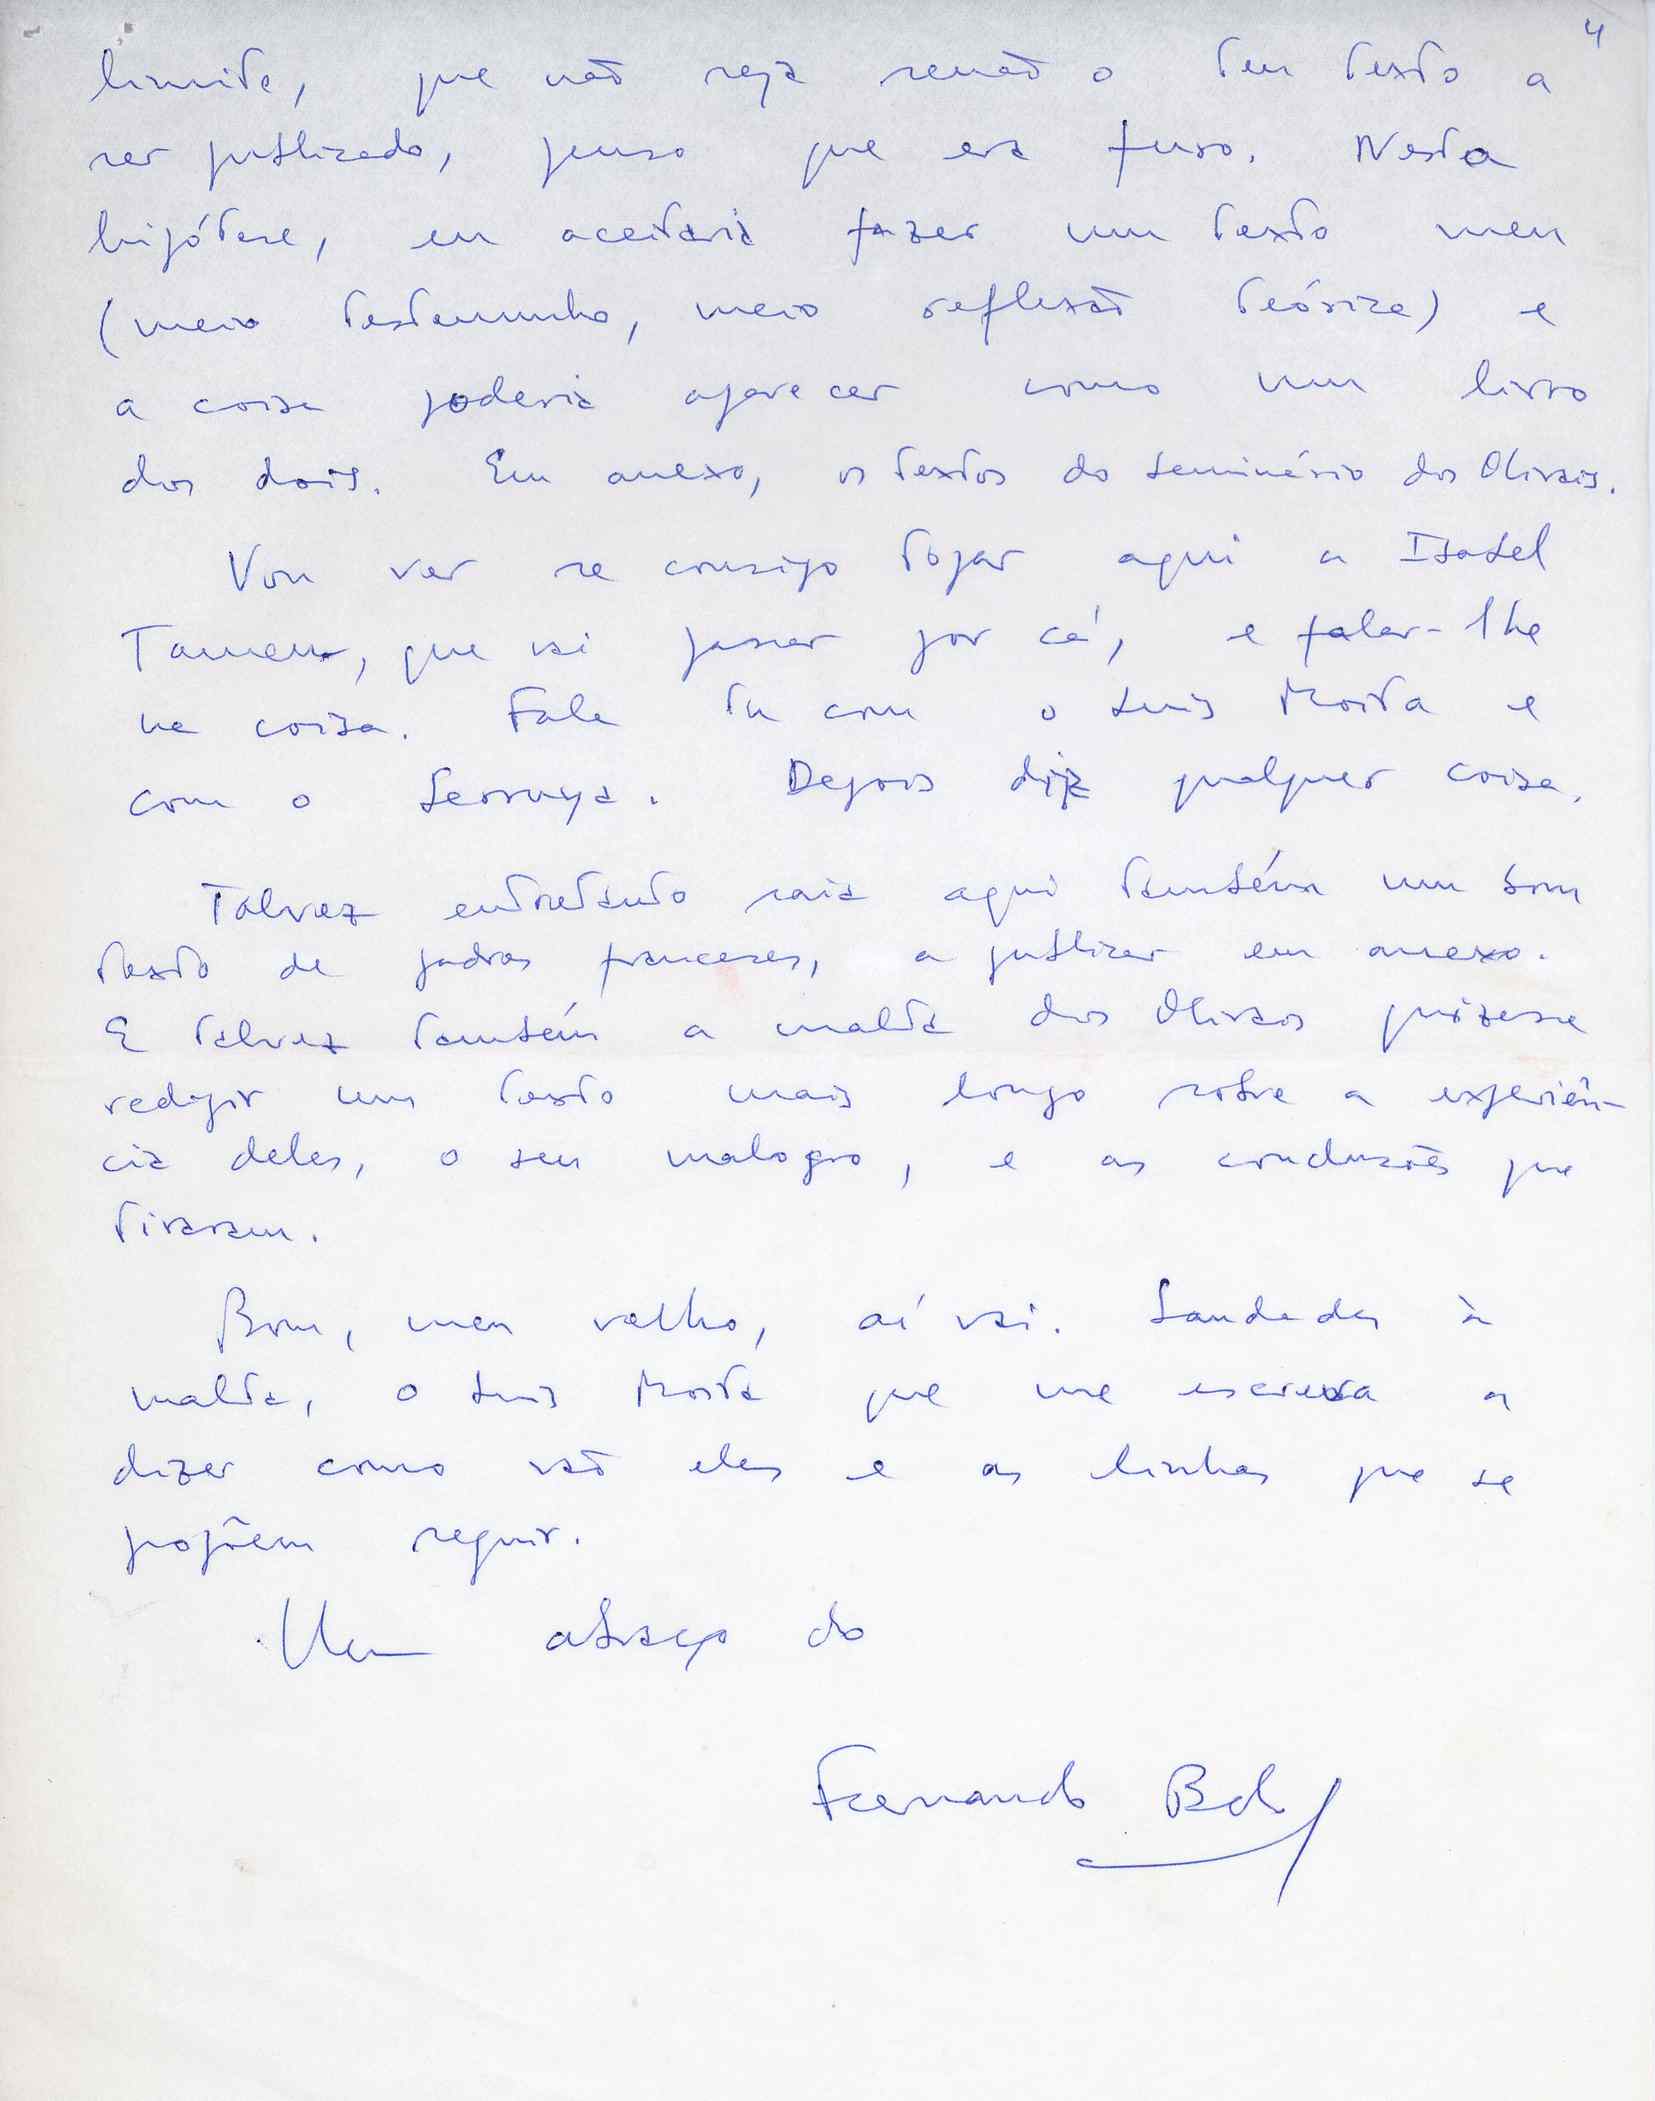 4
limite, que não seja senão o teu texto a
ser publicado, penso que era furo. Nesta
hipótese, eu aceitaria fazer um texto meu
(meio testemunho, meio reflexão teórica) e
a coisa poderia aparecer como um livro
dos dois. Em anexo, os textos do seminário dos Olivais.
Vou ver se consigo topar aqui a Isabel
Tamen, que vai passar por cá, e falar-lhe
na coisa. Fala tu com o Luis Moita e
com o Serruya. Depois diz qualquer coisa.
Talvez entretanto saia aqui também um bom
texto de padres franceses, a publicar em anexo.
E talvez também a malta dos Olivais quizesse
redigir um texto mais longo sobre a experiên-
cia deles, o seu malogro, e as conclusões que
tiraram.
Bom, meu velho, aí vai. Saudades à
malta, o Luis Moita que me escreva a
dizer como vão eles e as linhas que se
propõem seguir.
Um abraço do
Fernando Belo